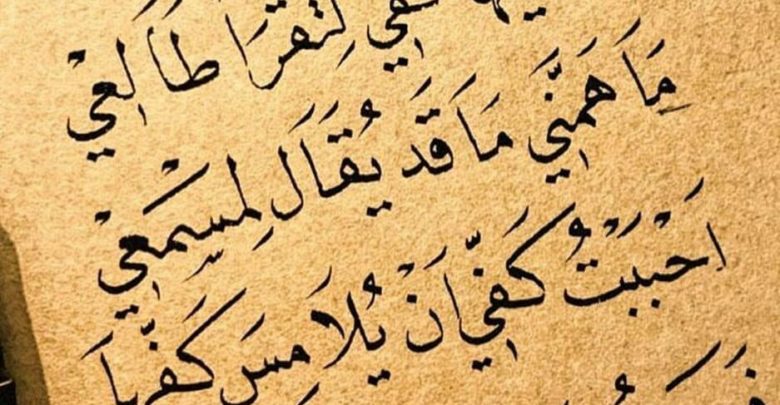 كفي لِتَقرَا طَالعيْ
مَا هَمَّني مَا قَد يُقَالَ لِمسْمِعيْ
اَحْبَبْتُ كَفّي اَنْ يُلَامِسَ كَفَّهاَ